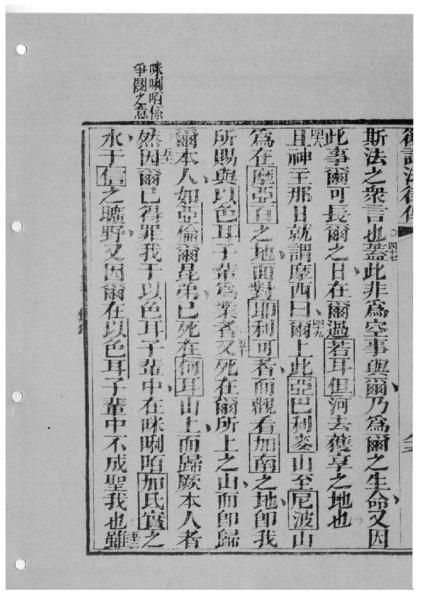 復講法律傳
斯法之眾言也四七蓋此非為空事與爾乃為爾之生命又因
此事爾可長爾之日在爾過若耳但河去獲享之地也
四八且神主那日就謂摩西曰四九爾上此亞巴利麥山至尼波山
為在摩亞百之地面對耶利可者而觀看加南之地即我
所賜與以色耳子輩為業者五十又死在爾所上之山而即歸
爾本人如亞倫爾昆弟已死在何耳山上而歸厥本人者
五一然因爾已得罪我于以色耳子輩中在咪唎咟加氐實之
水于信之曠野又因爾在以色耳子輩中不成聖我也五二雖
咪唎咟係
爭鬧之意